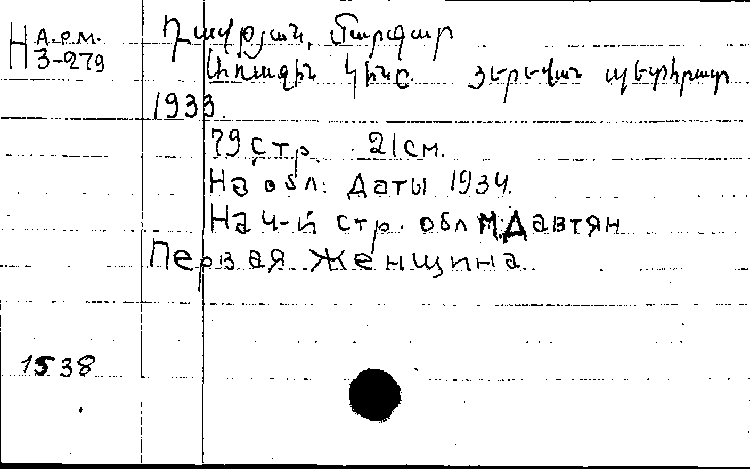 H Арм.
3-279
Դավթյան, Մարգար
Առաջին կինը. Յերեվան պետհրատ
1933.
79 стр. 21 см.
На обл: даты 1934.
На 4-й стр. обл М.Давтян
Первая женщина
1538